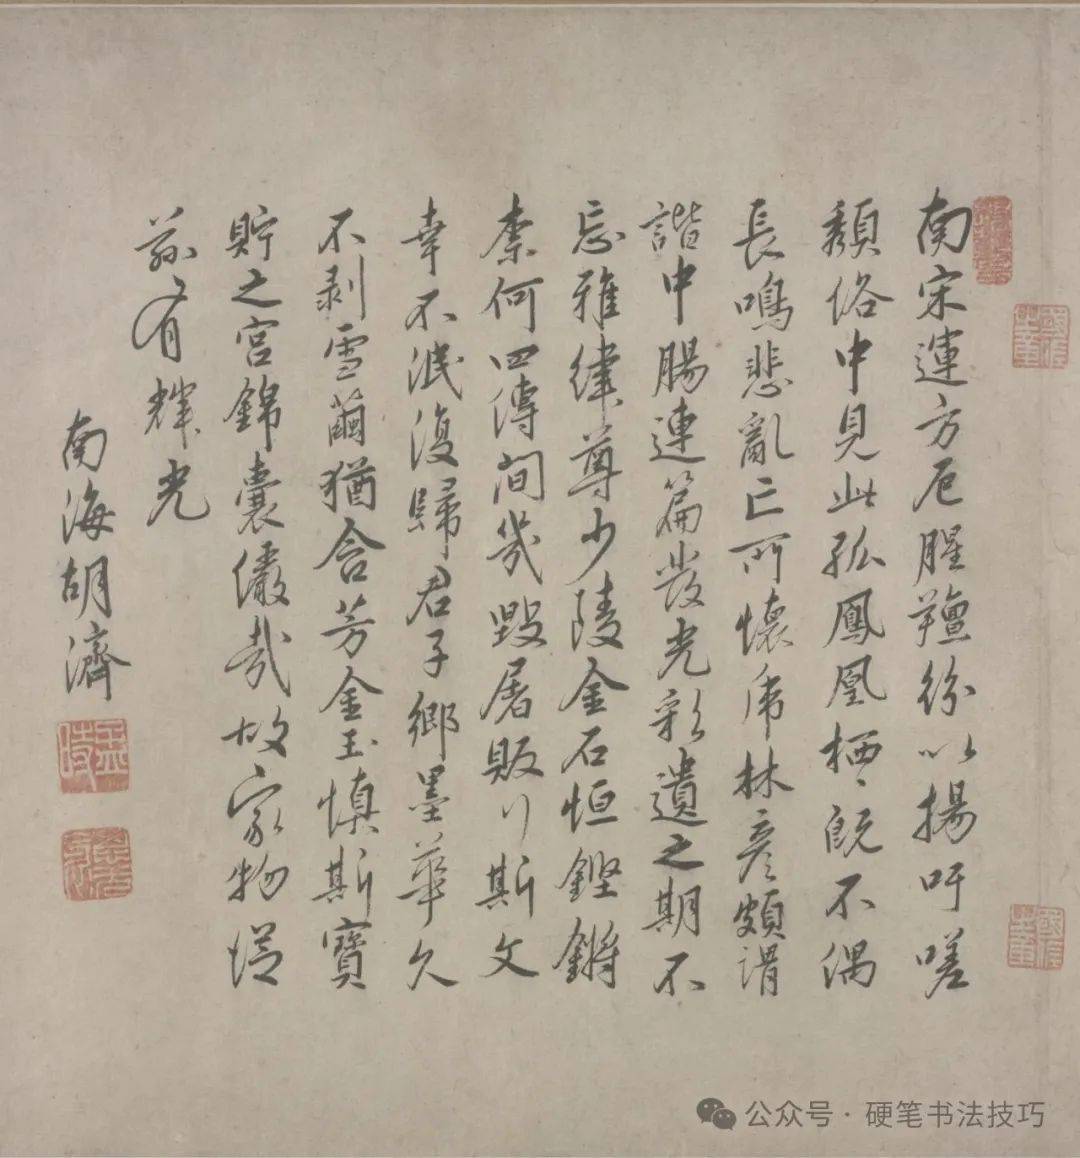 南宋運方厄腥羶紛以揚吁嗟
頹俗中見此孤鳳凰栖〻既不偶
長鳴悲亂亡所懷虎林彥頗謂
諧中腸連篇發光彩遺之期不
忘雅律尊少陵金石恒鏗鏘
柰何四傳間幾毀屠販行斯文
幸不泯復歸君子鄉墨華久
不剥雪繭猶含芳金玉慎斯寶
貯之宫錦囊儼哉故家物從
茲有輝光
南海胡濟
公众号·硬笔书法技巧